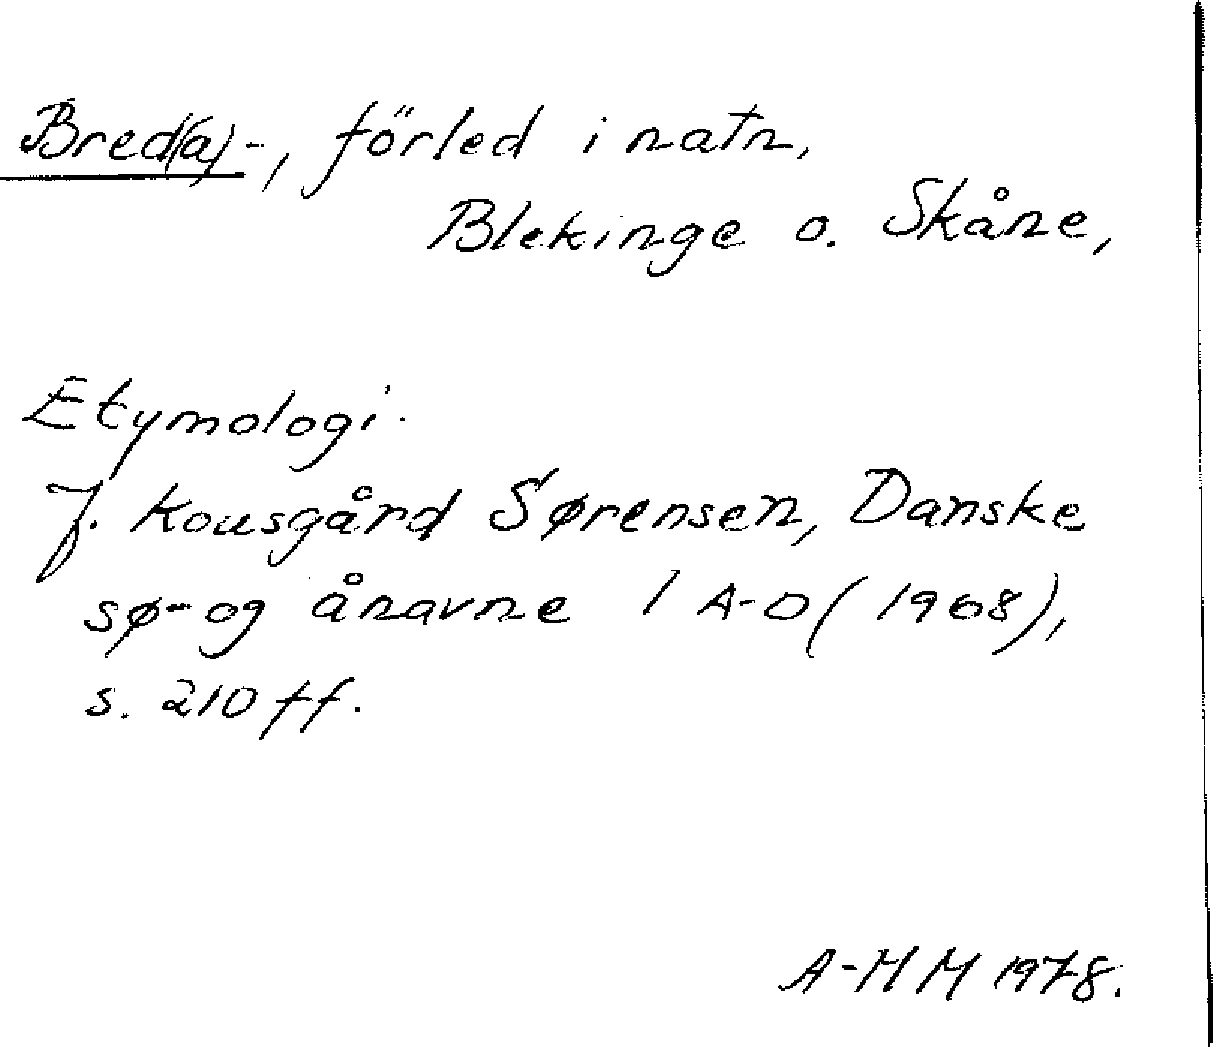 Bred(a)-, förled i natn,
Blekinge o. Skåne,
Etymologi.
J. Kousgård Sørensen, Danske
sø- og ånavne 1 A-D (1968),
s. 210 ff.
A-HM 1978.